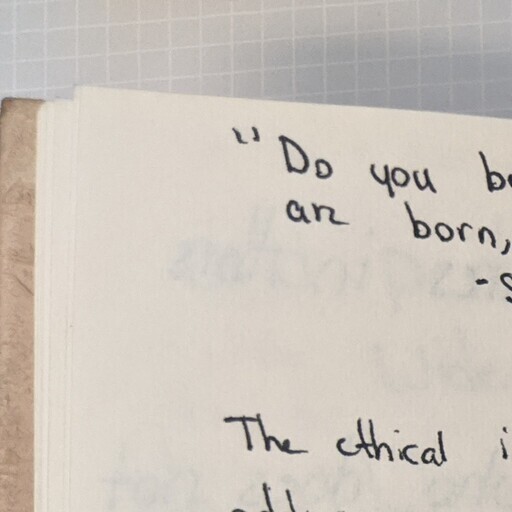 "Do you be
are born,
-S
The ethical i